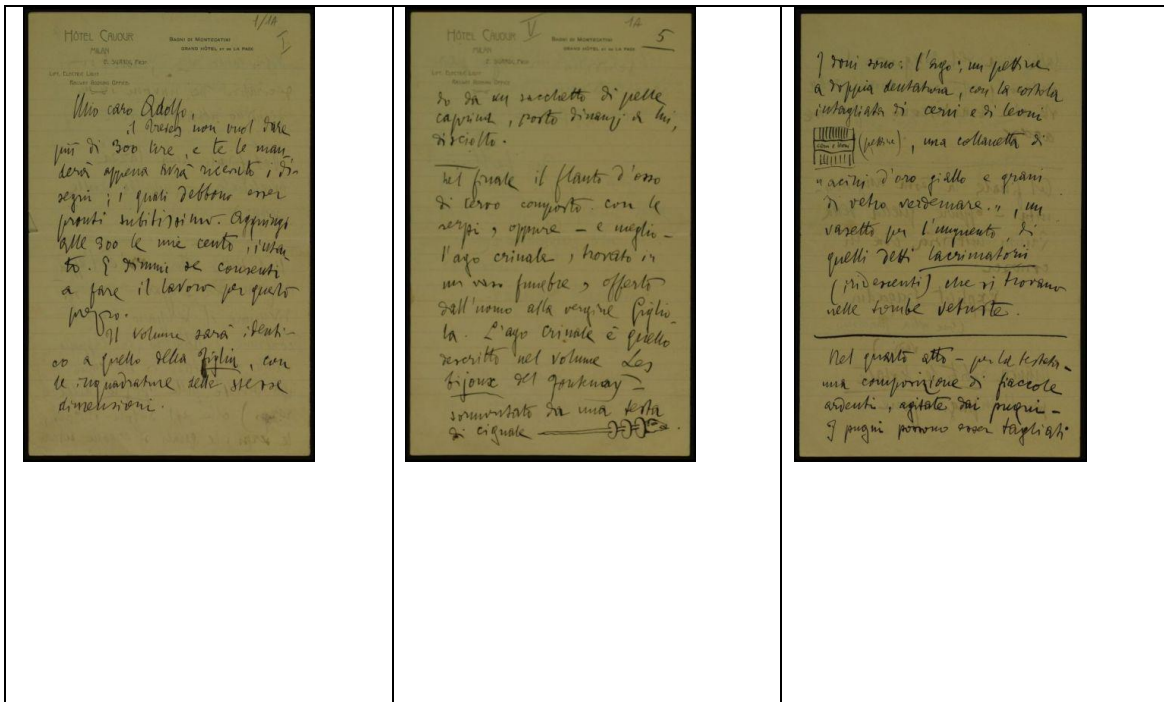 1/1A
I
HÔTEL CAVOUR
MILAN
BAGNI DI MONTECATINI
GRAND HÔTEL ET DE LA PAIX
Mio caro Adolfo,
il Treves non vuol dare
più di 300 lire, e te le man_
derà appena avrà ricevuto i di-
segni; i quali debbono esser
pronti subitissimo. Aggiungi
alle 300 le mie cento, intan
to. E dimmi se consenti
a fare il lavoro per questo
prezzo.
Il volume sarà identi-
co a quello della Figlia, con
le inquadrature delle stesse
dimensioni.
V
1A
5
HÔTEL CAVOUR
MILAN
BAGNI DI MONTECATINI
GRAND HÔTEL ET DE LA PAIX
do da un sacchetto di pelle
caprina, posto dinanzi a lui,
disciolto.
Nel finale il flauto d'osso
di cervo composto con le
serpi, oppure – e meglio –
l'ago crinale, trovato in
un vaso funebre, offerto
dall'uomo alla vergine Giglio-
la. L'ago crinale è quello
descritto nel volume Les
bijoux del Fontenay –
sormontato da una testa
di cignale
I doni sono: l'ago; un pettine
a doppia dentatura, con la costola
intagliata di cervi e di leoni
cervi e leoni
(pettine), una collanetta di
"acini d'oro giallo e grani
di vetro verdemare.", un
vasetto per l'unguento di
quelli detti lacrimatorii
(iridescenti) che si trovano
nelle tombe vetuste.
Nel quarto atto – per la testata –
una composizione di fiaccole
ardenti, agitate dai pugni –
I pugni possono esser tagliati